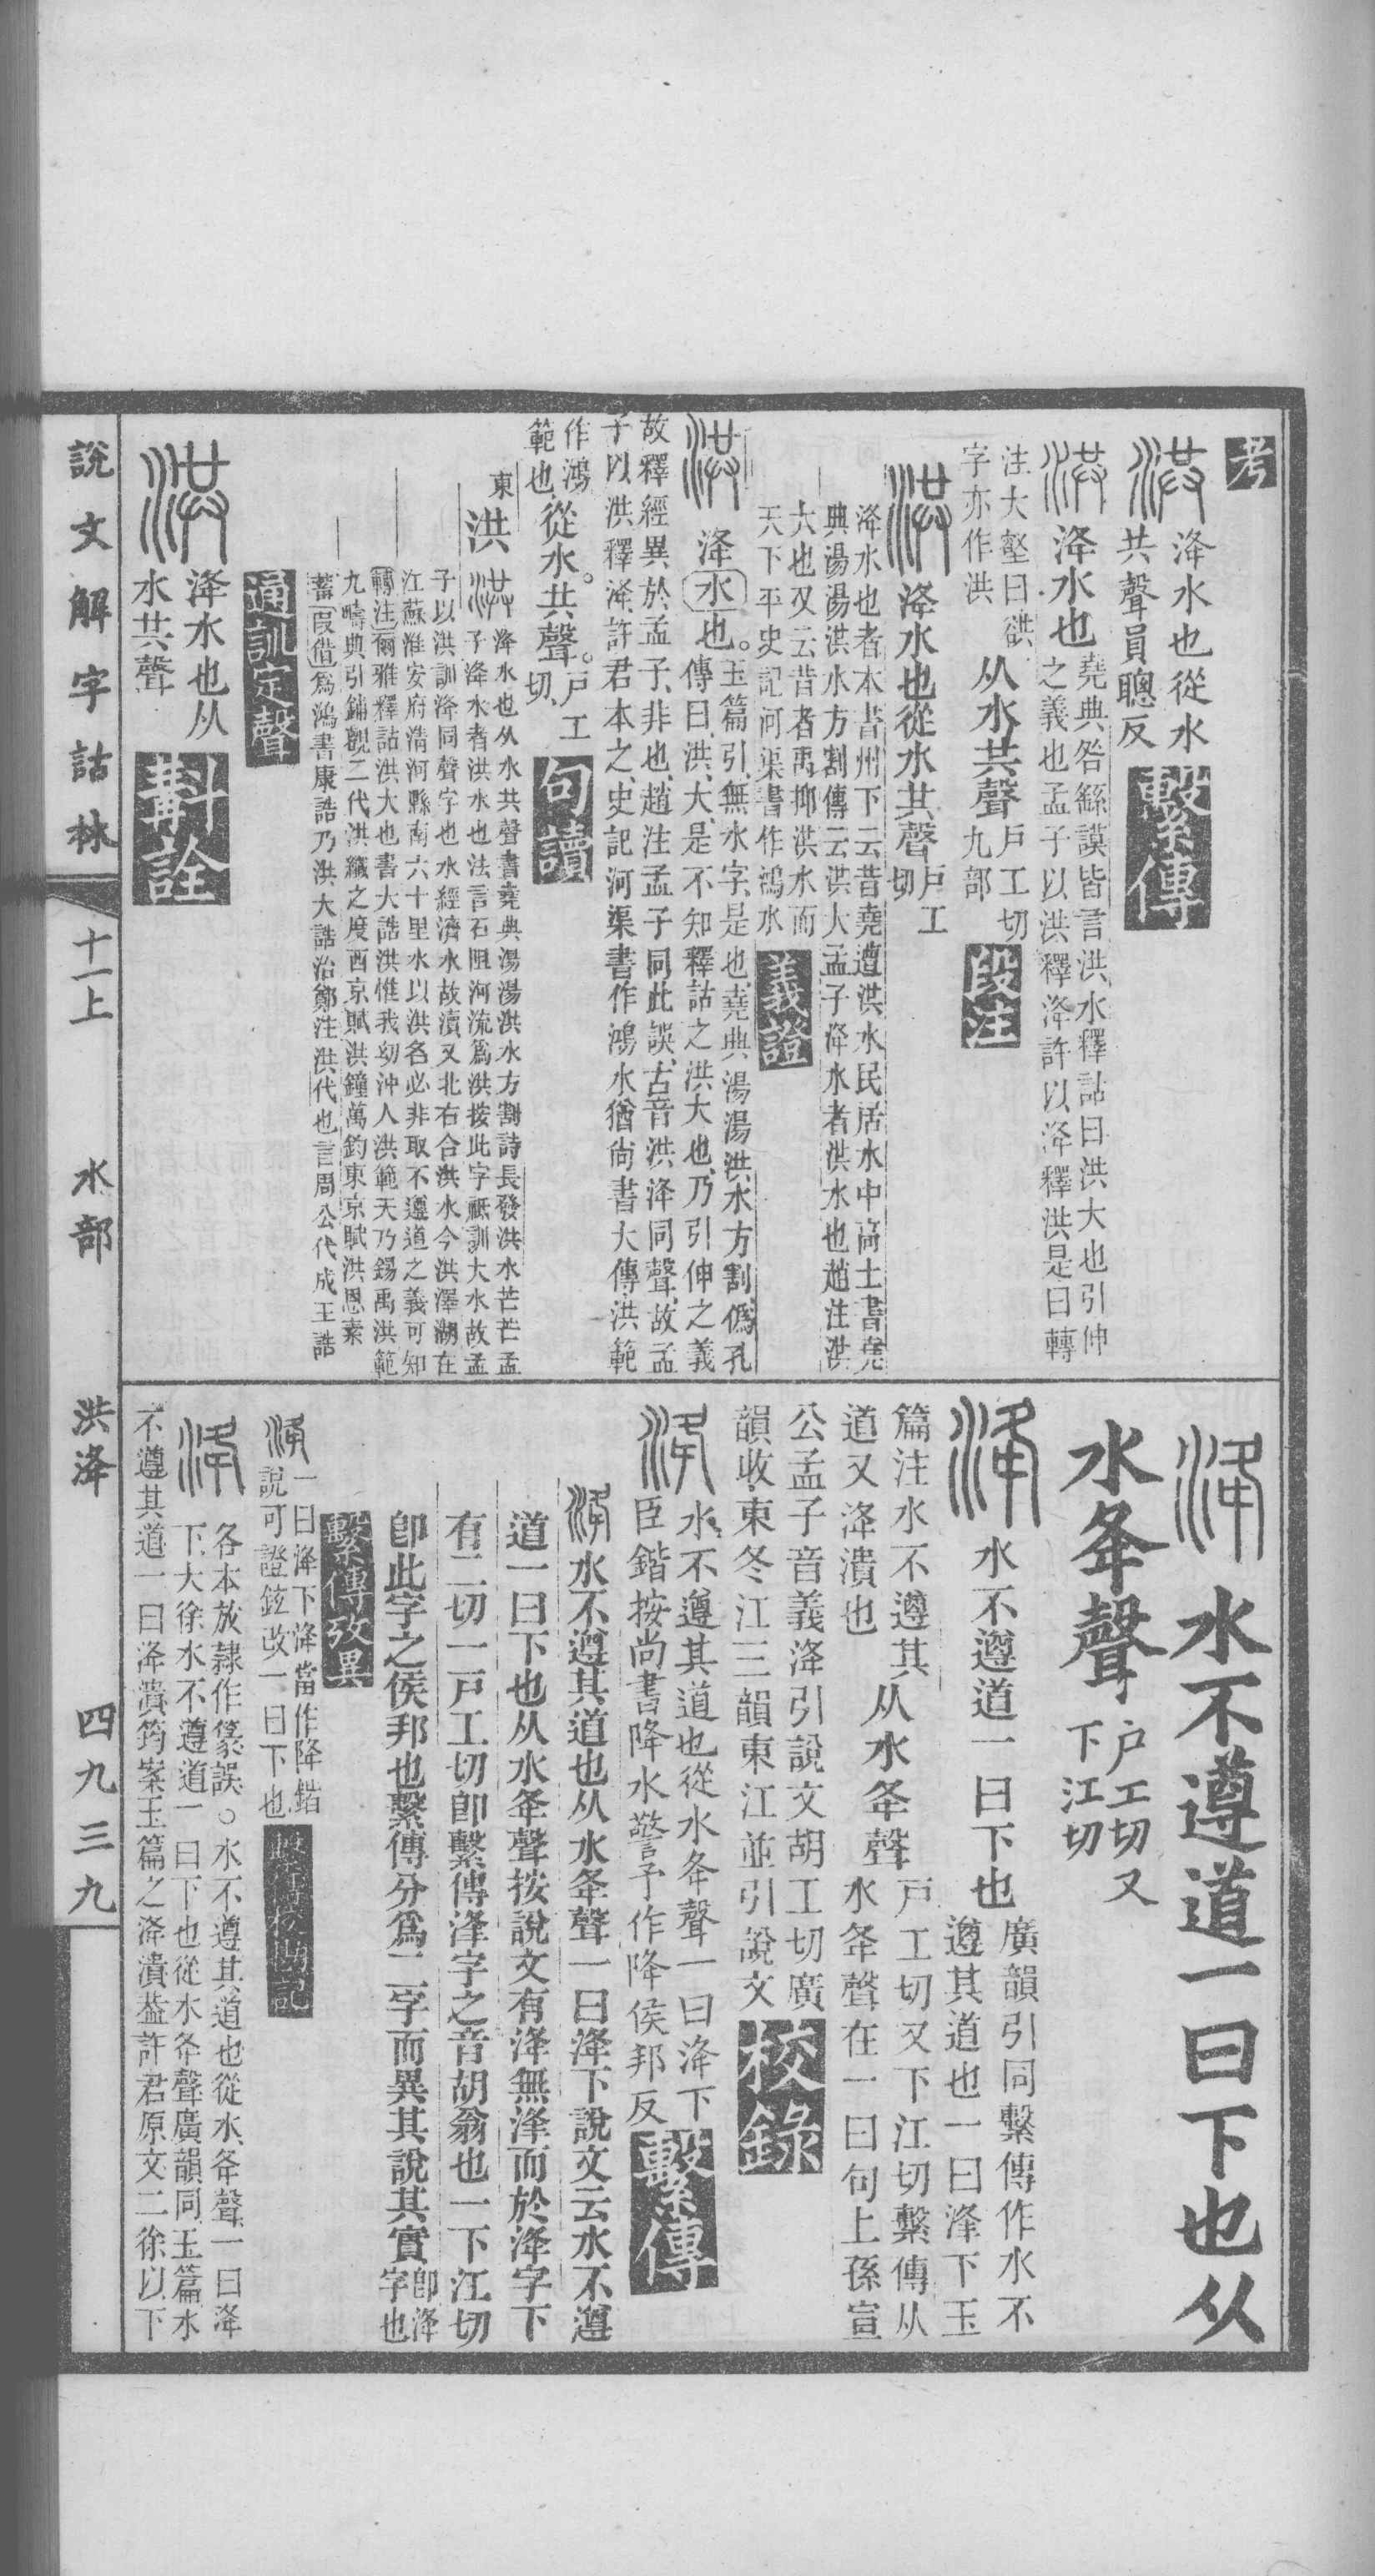 考
洚水也從水
共聲員聰反
繫傳
洚水也
堯典咎繇謨皆言洪水釋詁曰洪大也引伸
之義也孟子以洪釋洚許以洚釋洪是曰轉
注大壑曰谼
字亦作洪
从水共聲
戶工切
九部
段注
洚水也從水共聲
戶工
切
洚水也者本書州下云昔堯遭洪水民居水中高土書堯
典湯湯洪水方割傳云洪大孟子洚水者洪水也趙注洪
大也又云昔者禹抑洪水而
天下平史記河渠書作鴻水
義證
洚水也。
玉篇引、無水字、是也、堯典湯湯洪水方割、僞孔
傳曰、洪、大、是不知釋詁之洪大也、乃引伸之義
故釋經異於孟子、非也、趙注孟子同此誤、古音洪洚同聲、故孟
子以洪釋洚、許君本之、史記河渠書作鴻水猶尚書大傳洪範
作鴻
範也、
從水。共聲。
戶工
切、
句讀
東
洪
洚水也从水共聲書堯典湯湯洪水方割詩長發洪水芒芒孟
子洚水者洪水也法言石阻河流爲洪按此字祇訓大水故孟
子以洪訓洚同聲字也水經濟水故瀆又北右合洪水今洪澤湖在
江蘇淮安府清河縣南六十里水以洪名必非取不遵道之義可知
轉注爾雅釋詁洪大也書大誥洪惟我幼沖人洪範天乃錫禹洪範
九疇典引鋪觀二代洪纖之度西京賦洪鐘萬鈞東京賦洪恩素
蓄叚借爲鴻書康誥乃洪大誥治鄭注洪代也言周公代成王誥
通訓定聲
洚水也从
水共聲
斠詮
水不遵道一曰下也从
水夅聲
戶工切又
下江切
水不遵道一曰下也
廣韻引同繫傳作水不
遵其道也一曰洚下玉
篇注水不遵其
道又洚潰也
从水夅聲
戶工切又下江切繫傳从
水夅聲在一曰句上孫宣
公孟子音義洚引說文胡工切廣
韻收東冬江三韻東江並引說文
校錄
水不遵其道也從水夅聲一曰洚下
臣鍇按尚書降水警予作降侯邦反
繫傳
水不遵其道也从水夅聲一曰洚下說文云水不遵
道一曰下也从水夅聲按說文有洚無浲而於洚字下
有二切一戶工切卽繫傳浲字之音胡翁也一下江切
卽此字之侯邦也繫傳分爲二字而異其說其實
卽洚
字也
繫傳攷異
一曰洚下洚當作降鍇
說可證鉉改一曰下也
繫傳校勘記
各本放隸作篆誤○水不遵其道也從水夅聲一曰洚
下大徐水不遵道一曰下也從水夅聲廣韻同玉篇水
不遵其道一曰洚潰筠案玉篇之洚潰蓋許君原文二徐以下
說文解字詁林
十一上
水部
洪洚
四九三九